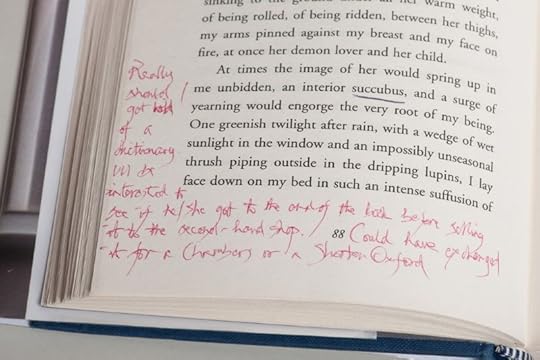 sinking to the ground under all her warm weight,
of being rolled, of being ridden, between her thighs,
my arms pinned against my breast and my face on
fire, at once her demon lover and her child.
At times the image of her would spring up in
me unbidden, an interior succubus, and a surge of
yearning would engorge the very root of my being.
One greenish twilight after rain, with a wedge of wet
sunlight in the window and an impossibly unseasonal
thrush piping outside in the dripping lupins, I lay
face down on my bed in such an intense suffusion of
88
Really
should
get hold
of a
dictionary
be
interested to
see if he/she got to the end of the book before selling
it to the second-hand shop. Could have exchanged
it for a Chambers or a Shorter Oxford